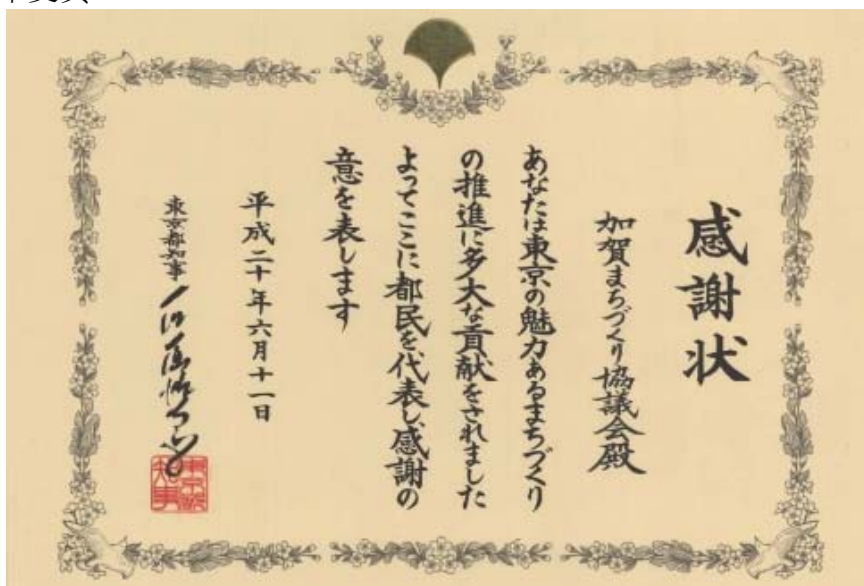 感謝状
加賀まちづくり協議会殿
あなたは東京の魅力あるまちづくり
の推進に多大な貢献をされました
よってここに都民を代表し感謝の
意を表します
平成二十年六月十一日
東京都知事 石原慎太郎
東京都知事